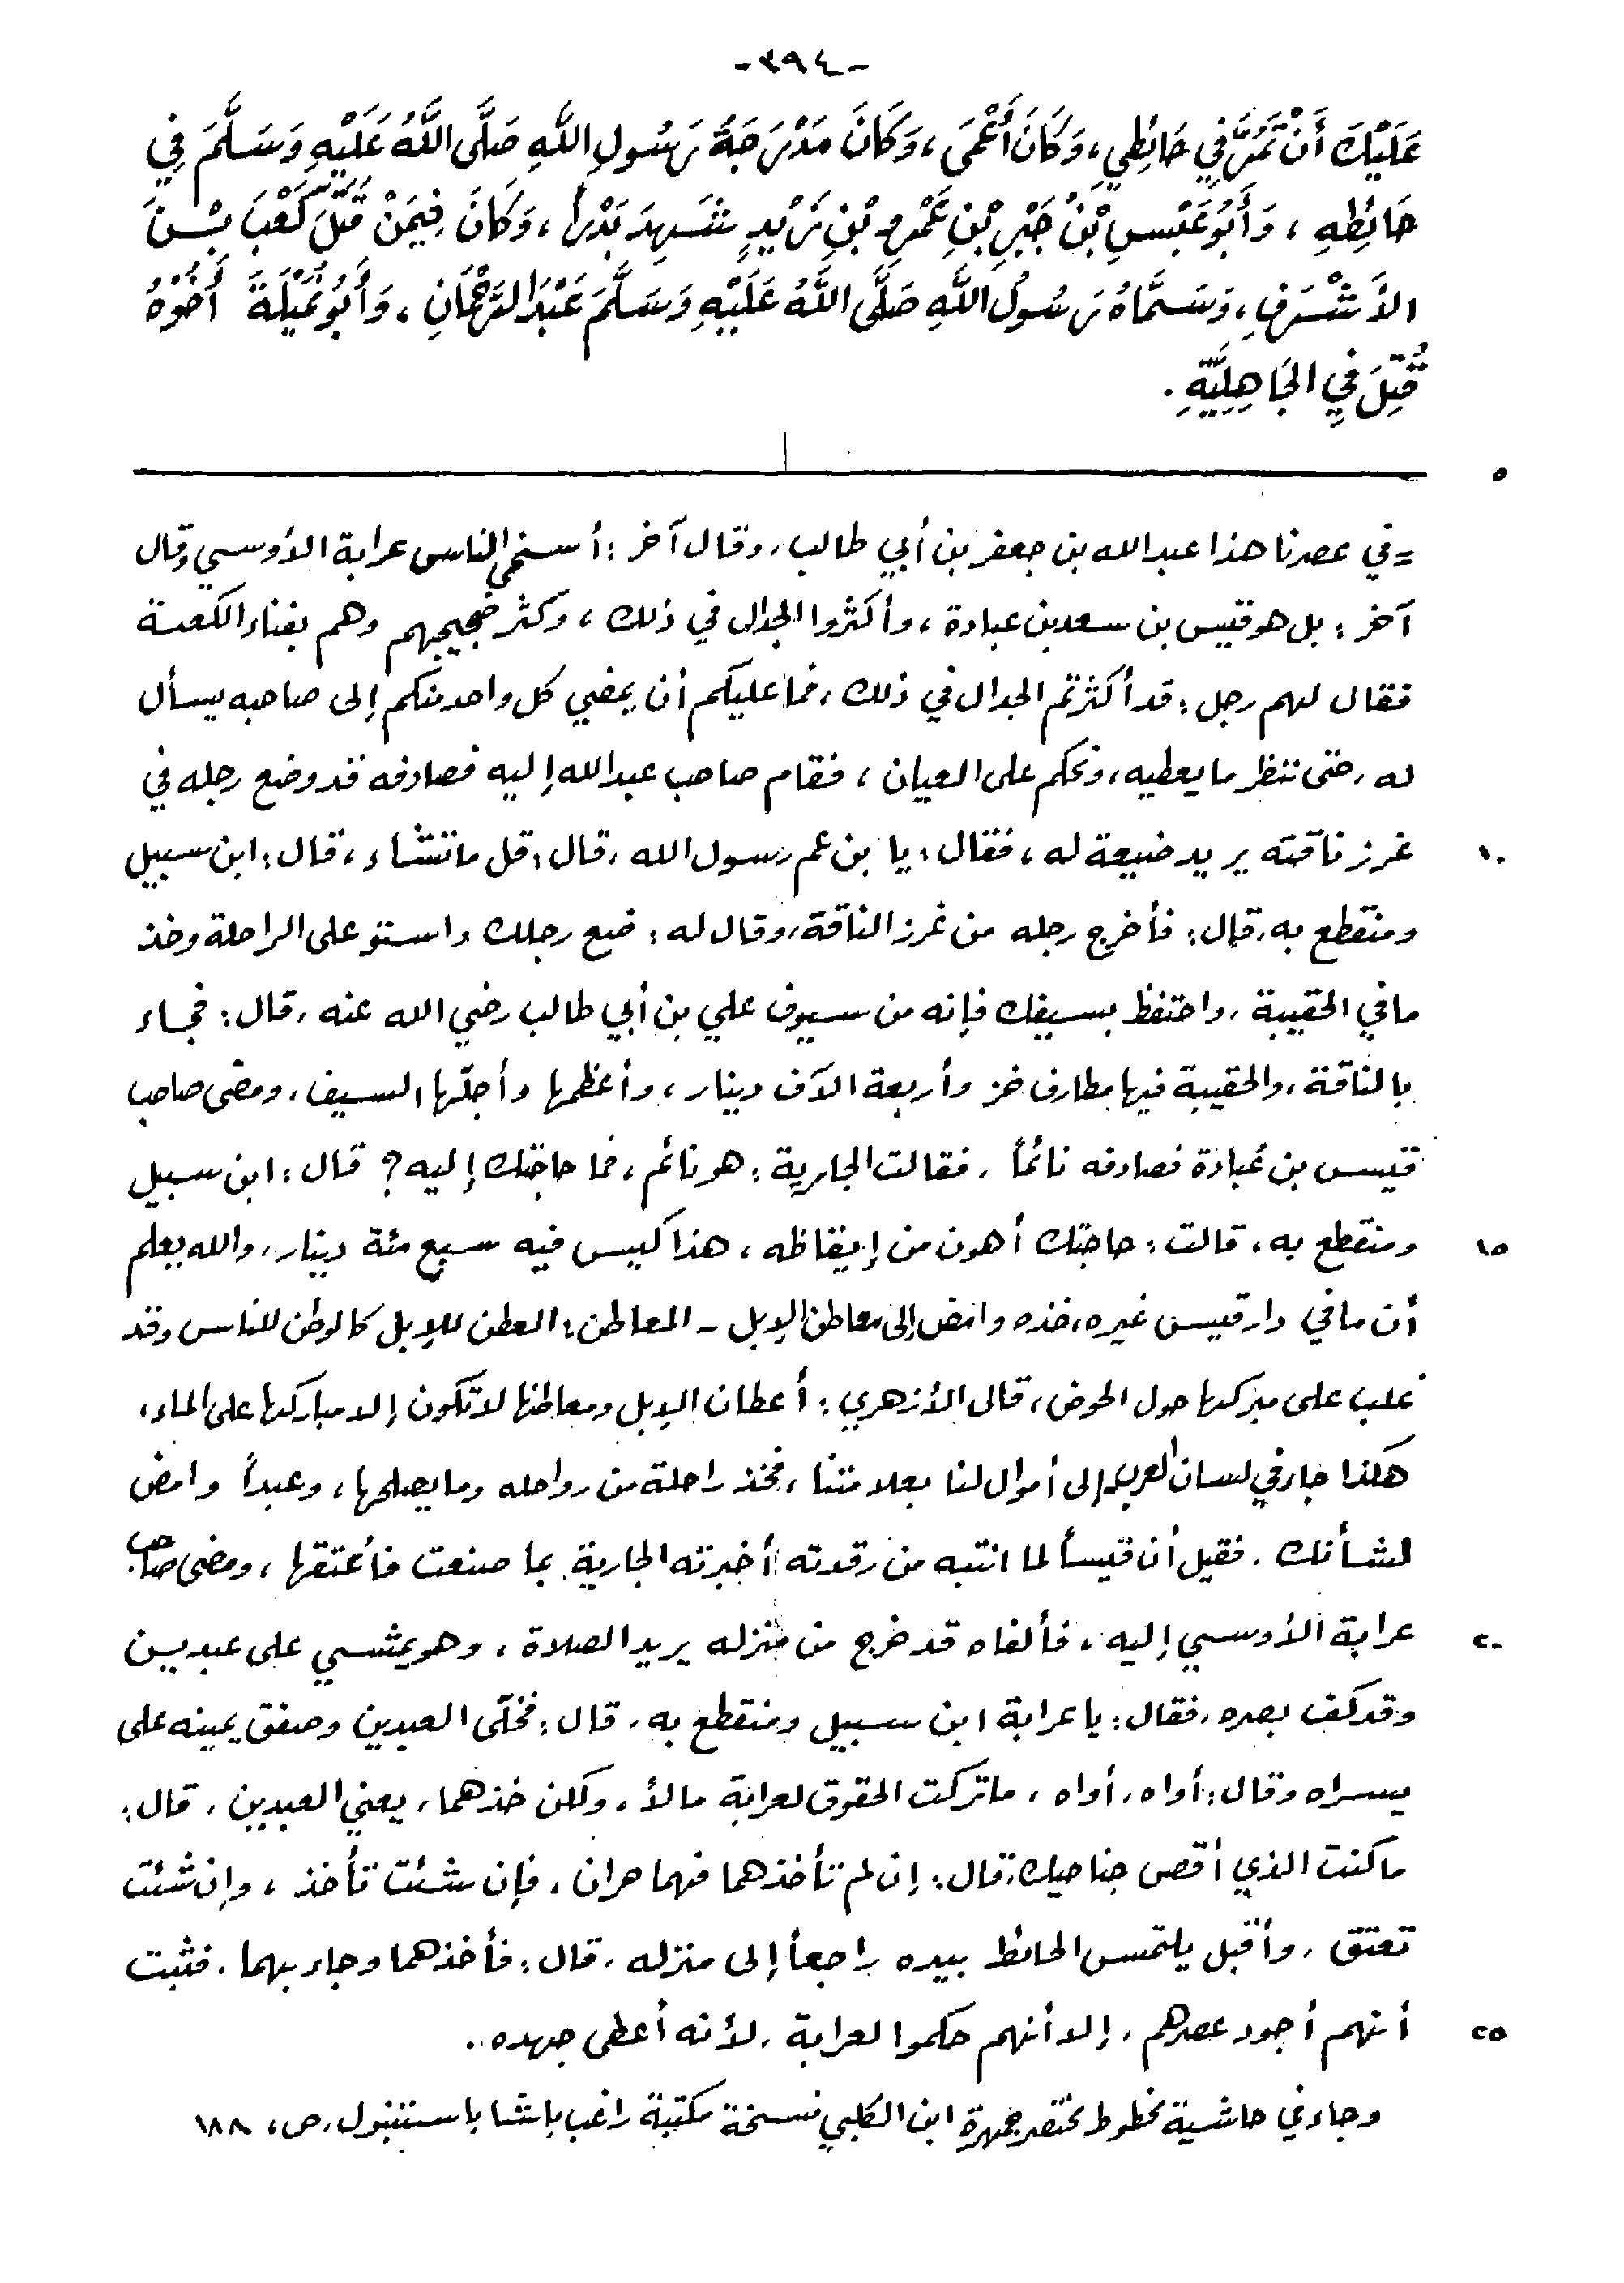 -٣٩٤-
عَلَيْكَ أَنْ تَمُرَّ فِي حَائِطِي، وَكَانَ أَعْمَى، وَكَانَ مَدْرَجَةُ رَسُولِ اللَّهِ صَلَّى اللَّهُ عَلَيْهِ وَسَلَّمَ فِي
حَائِطِهِ، وَأَبُو عَبْسِ بْنُ جَبْرِ بْنِ عَمْرِو بْنِ زَيْدٍ شَهِدَ بَدْراً، وَكَانَ فِيمَنْ قَتَلَ كَعْبَ بْنَ
الأَشْرَفِ، وَسَمَّاهُ رَسُولُ اللَّهِ صَلَّى اللَّهُ عَلَيْهِ وَسَلَّمَ عَبْدَ الرَّحْمَانِ، وَأَبُو نُمَيْلَةَ أَخُوْهُ
قُتِلَ فِي الجَاهِلِيَّةِ.
٥
= في عصرنا هذا عبد الله بن جعفر بن أبي طالب، وقال آخر: أسخى الناس عرابة الأوسي وقال
آخر: بل هو قيس بن سعد بن عبادة، وأكثروا الجدال في ذلك، وكثر ضجيجهم وهم بفناء الكعبة
فقال لهم رجل: قد أكثرتم الجدال في ذلك، فما عليكم أن يمضي كل واحد منكم إلى صاحبه يسأل
له، حتى ننظر ما يعطيه، ونحكم على العيان، فقام صاحب عبد الله إليه فصادفه قد وضع رجله في
غرز ناقته يريد ضيعة له، فقال: يا بن عم رسول الله، قال: قل ما تشاء، قال: ابن سبيل ١٠
ومنقطع به، قال: فأخرج رجله من غرز الناقة، وقال له: ضع رجلك واستو على الراحلة وخذ
ما في الحقيبة، واحتفظ بسيفك فإنه من سيوف علي بن أبي طالب رضي الله عنه، قال: فجاء
بالناقة، والحقيبة فيها مطارف خز وأربعة آلاف دينار، وأعظمها وأجلّها السيف، ومضى صاحب
قيس بن عُبادة فصادفه نائماً، فقالت الجارية: هو نائم، فما حاجتك إليه؟ قال: ابن سبيل
ومنقطع به، قالت: حاجتك أهون من إيقاظه، هذا كيس فيه سبع مئة دينار، والله يعلم ١٥
أن ما في دار قيس غيره، خذه وامض إلى معاطن الإبل - المعاطن: العطن للإبل كالوطن للناس وقد
غلب على مبركها حول الحوض، قال الأزهري: أعطان الإبل ومعاطنها لا تكون إلا مباركها على الماء،
هكذا جاء في لسان العرب - إلى أموال لنا بعلامتنا، فخذ راحلة من رواحله وما يصلحها، وعبداً وامض
لشأنك. فقيل أن قيساً لما انتبه من رقدته أخبرته الجارية بما صنعت فأعتقها، ومضى صاحب
عرابة الأوسي إليه، فألفاه قد خرج من منزله يريد الصلاة، وهو يمشي على عبدين ٢٠
وقد كف بصره، فقال: يا عرابة ابن سبيل ومنقطع به. قال: فخلّى العبدين وصفق يمينه على
يسراه وقال: أواه، أواه، ما تركت الحقوق لعرابة مالاً، ولكن خذهما، يعني العبدين. قال:
ما كنت الذي أقص جناحيك، قال: إن لم تأخذهما فهما حران، فإن شئت تأخذ، وإن شئت
تعتق، وأقبل يلتمس الحائط بيده راجعاً إلى منزله، قال: فأخذهما وجاء بهما. فثبت
أنهم أجود عصرهم، إلا أنهم حكموا لعرابة، لأنه أعطى جهده. ٢٥
وجاء في حاشية مخطوط مختصر جمهرة ابن الكلبي نسخة مكتبة راغب باشا باستنبول، ص، ١٨٨